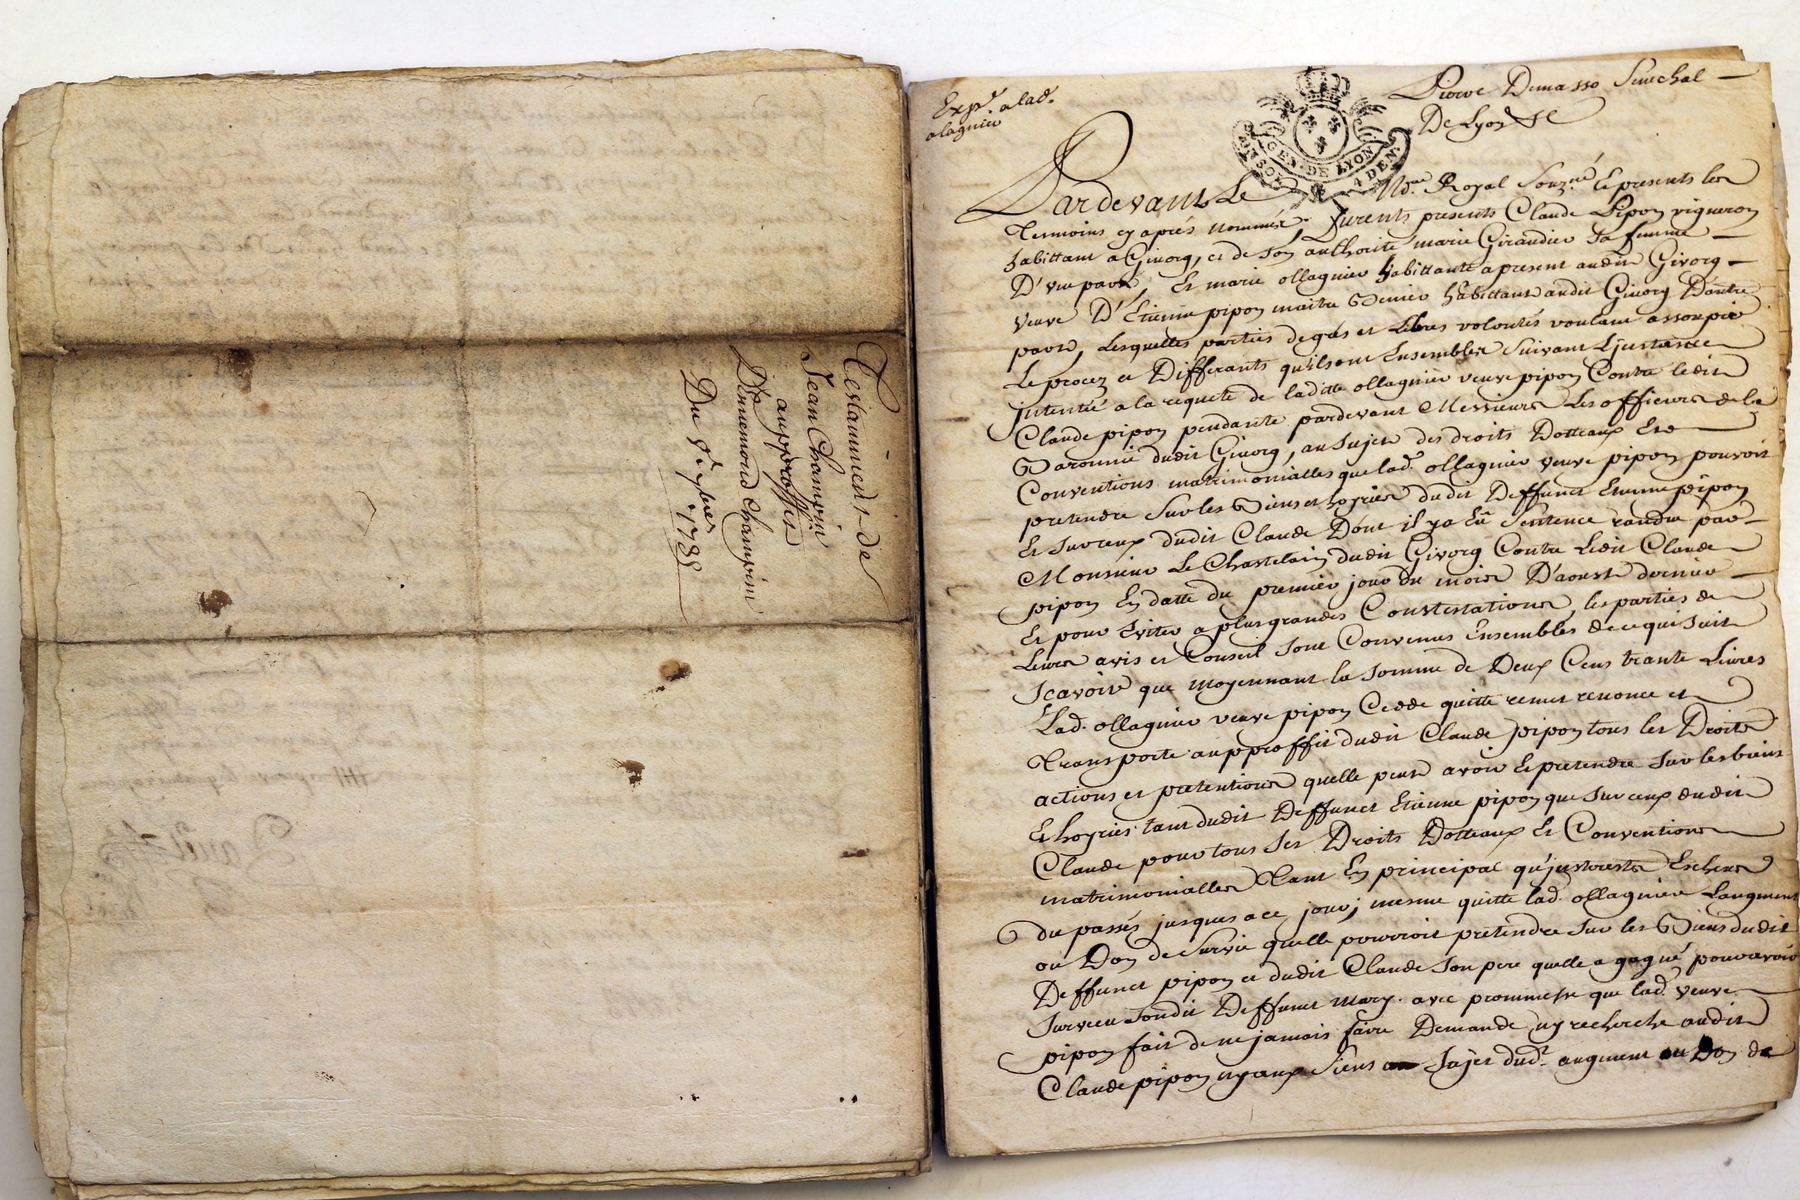 Testamment de
Jean Champin
au proffit
D'Ennemond Champin
Du 9e
Expé. a lad.
olagnier
Pierre Demasso Senechal
De Lyon &c
GEN. DE LYON
4 DEN.
Pardevant Le No.re Royal Souz.né Et presents les
Tesmoins cy aprés nommés, furents presents Claude Pipon vigneron
habittant a Givorg, et de son authorité marie Giraudier sa femme
D'vne part, Et marie ollagnier habittante apresent audit Givorg
veuve D'Etienne pipon maitre habittant audit Givorg Dautre
part, Lesquelles parties de gré et Libres volontés voulant assoupir
Le procez et Differants qu'ils ont Ensembles Suivant Ljnstance
jntentée a la requete de laditte ollagnier veuve pipon Contre ledit
Claude pipon pendante pardevant Messieurs Les officiers de la
Baronnie dudit Givorg, au Sujet des droits Dotteaux Et
Conventions matrimonialles que lad. ollagnier veuve pipon pouvoit
pretendre Sur les Biens et hoyries dudit Deffunct Etienne pipon
Et Sur ceux dudit Claude Dont il y a Eû Sentence randue par
Monsieur Le Chastelain dudit Givorg Contre Ledit Claude
pipon En datte du premier jour du mois D'aoust dernier
Et pour Eviter a plus grandes Contestations, les parties de
Leurs avis et Conseil sont Convenus Ensembles de ce qui suit
Scavoir que moyennant la somme de Deux Cens trante Livres
Lad. ollagnier veuve pipon Cedde quitte remet renonce et
Transporte au proffit dudit Claude pipon tous les Droits
actions et pretentions quelle peut avoir Et pretendre Sur les biens
Et hoyries tant dudit Deffunct Etienne pipon que Sur ceux dudit
Claude pour tous Ses Droits Dotteaux Et Conventions
matrimonialles Tant En principal qu'jnterests Escheus
du passés jusques a ce jour; mesme quitte lad. ollagnier Laugment
ou Don de Survie quelle pourroit pretendre Sur les Biens dudit
Deffunct pipon et dudit Claude Son pere quelle a gagné pour avoir
Surveçu Sondit Deffunct mary. avec promesse que lad. veuve
pipon fait de ne jamais faire Demande ny recherche audit
Claude pipon ny aux Siens au Sujet dud. augment ou Don de